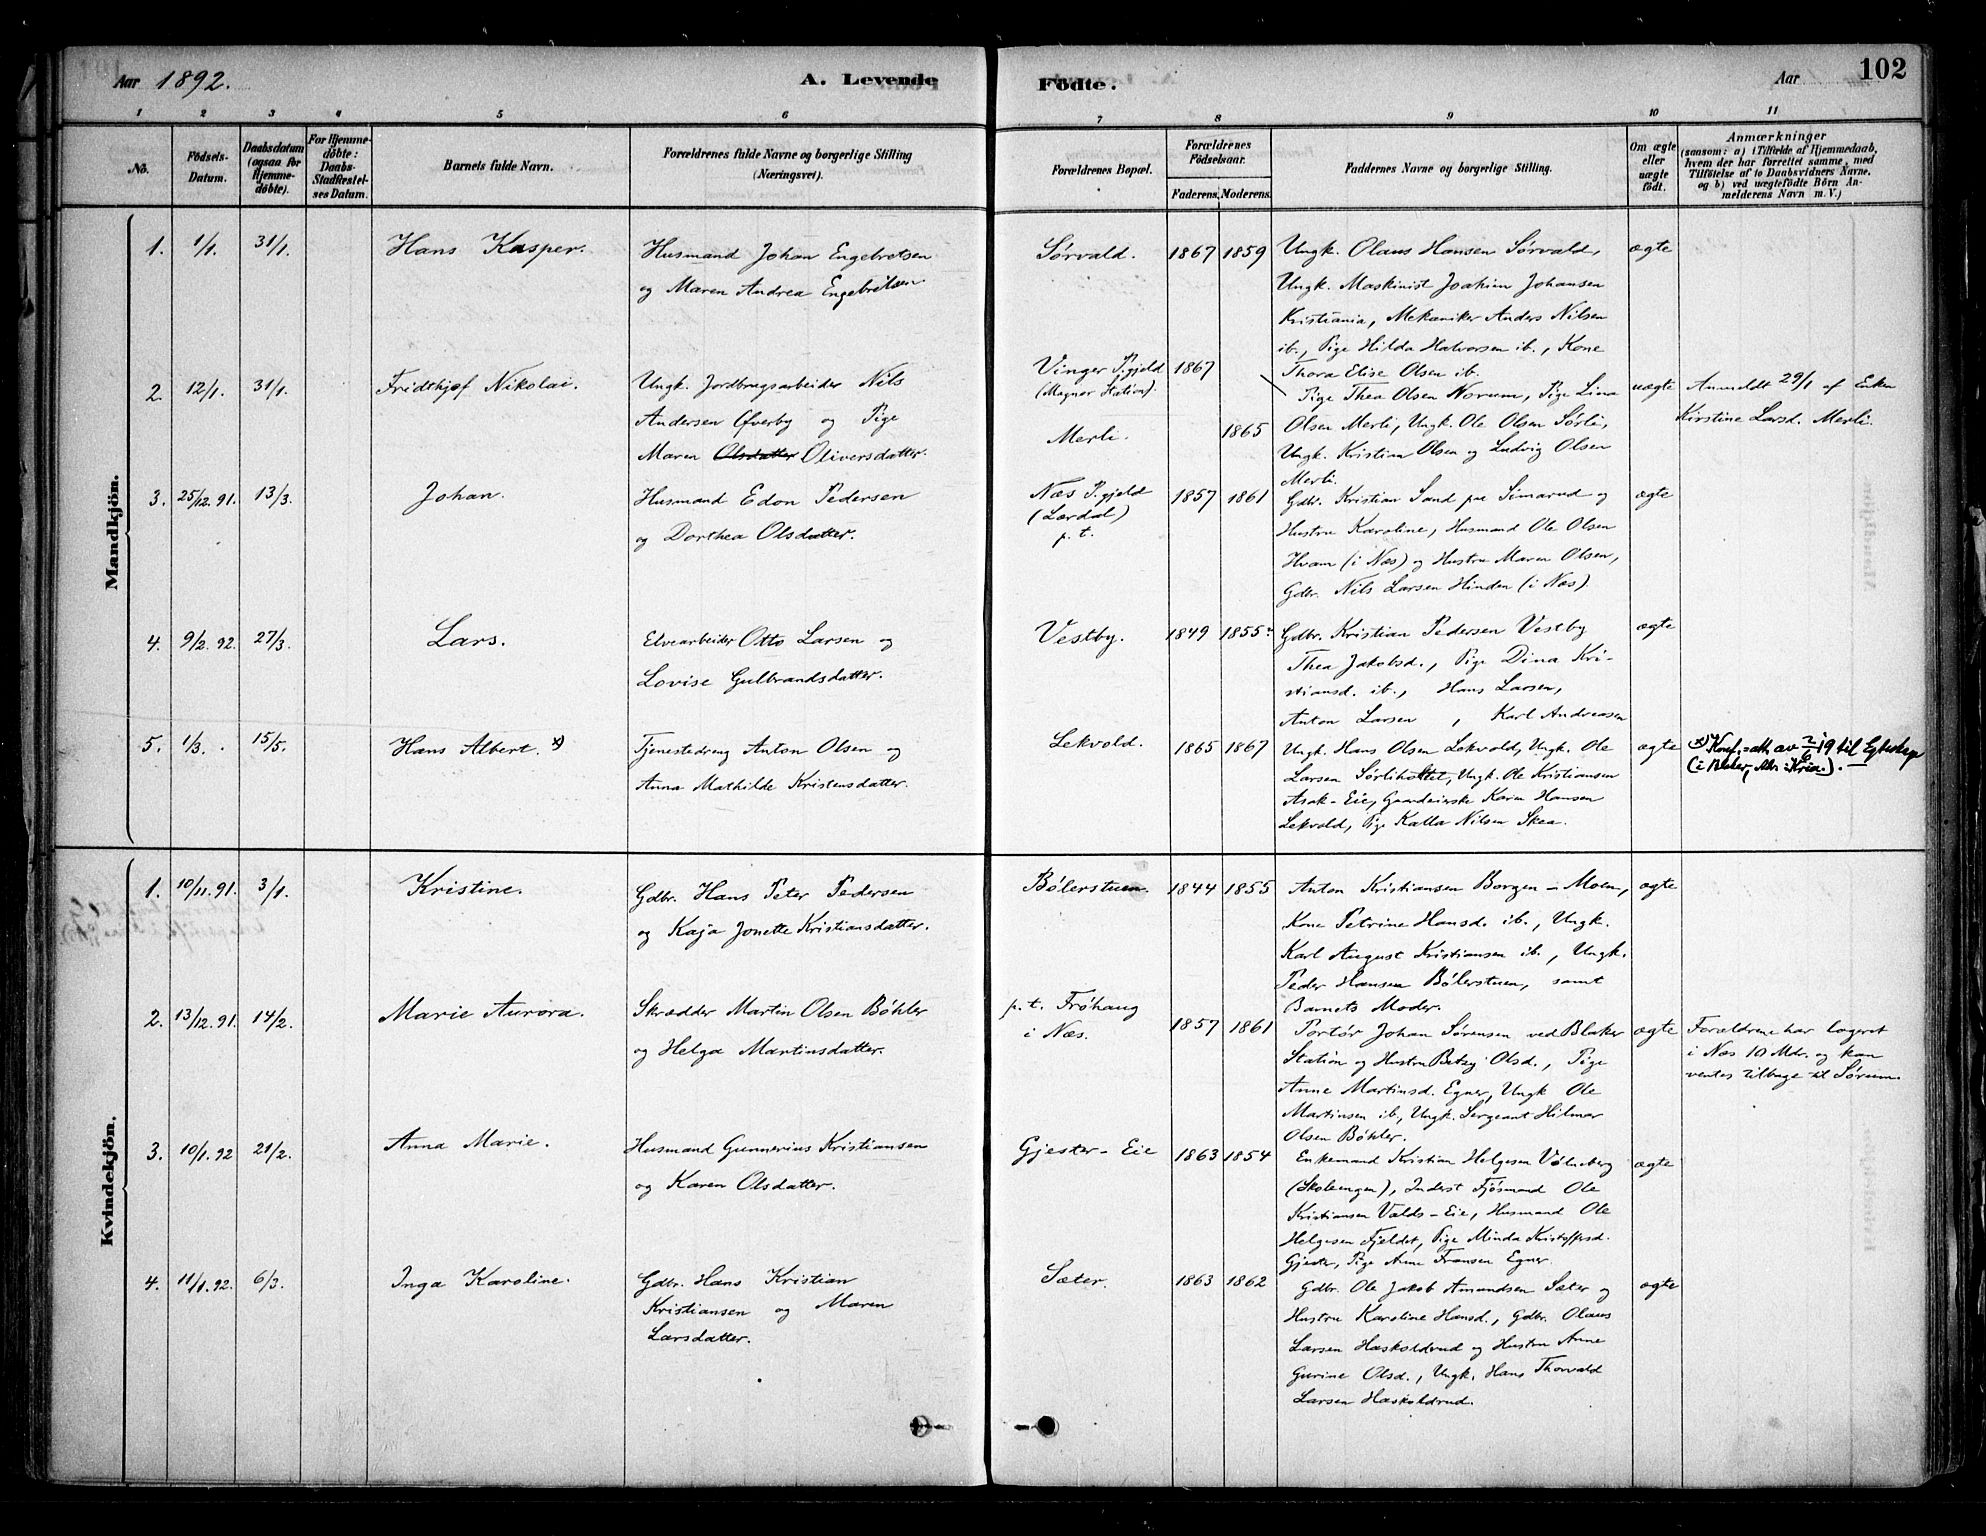 Aar 1892.
A. Levende Födte.
Aar
102
1 2 3 4 5 6 7 8 9 10 11
No.
Födsels-Datum.
Daabsdatum (ogsaa for Hjemme-döbte).
For Hjemme-döbte: Daabs-Stadfæstel-ses Datum.
Barnets fulde Navn.
Forældrenes fulde Navne og borgerlige Stilling (Næringsvei).
Forældrenes Bopæl.
Forældrenes Födselsaar.
Faderens. Moderens.
Faddernes Navne og borgerlige Stilling.
Om ægte eller uægte födt.
Anmærkninger
(saasom: a) i Tilfælde af Hjemmedaab, hvem der har forrettet samme, med Tilföielse af to Daabsvidners Navne, og b) ved uægtefödte Börn An-melderens Navn m. V.)
Mandkjön.
1. 1/1. 31/1. Hans Kasper.
Husmand Johan Engebretsen
og Maren Andrea Engebretsen.
Sørvald. 1867 1859
Ungk. Olaus Hansen Sørvald,
Ungk. Maskinist Joakim Johansen
Kristiania, Mekaniker Anders Nilsen
ib., Pige Hilda Halvorsen ib., Kone
Thora Elise Olsen ib.
ægte
2. 12/1. 31/1. Fridthjof Nikolai.
Ungk. Jordbrugsarbeider Nils
Andersen Øverby og Pige
Maren Olsdatter Oliversdatter.
Vinger P.gjeld
(Magnor Station).
Merli.
1867
1865
Pige Thea Olsen Norum, Pige Lina
Olsen Merli, Ungk. Ole Olsen Sørli,
Ungk. Kristian Olsen og Ludvig Olsen
Merli.
uægte
Anmeldt 29/1 af Enken
Kirstine Larsd. Merli.
3. 25/12. 91. 13/3. Johan.
Husmand Edon Pedersen
og Dorthea Olsdatter.
Næs P.gjeld
(Lærdal)
p. t.
1857 1861
Gdbr. Kristian Sand paa Simarud og
Hustru Karoline, Husmand Ole Olsen
Hvam (i Næs) og Hustru Maren Olsen,
Gdbr. Nils Larsen Hinden (i Næs).
ægte
4. 9/2. 92. 27/3. Lars.
Elvearbeider Otto Larsen og
Lovise Gulbrandsdatter.
Vestby. 1849 1855
Gdbr. Kristian Pedersen Vestby
Thea Jakobsd., Pige Dina Kri-
stiansd. ib., Hans Larsen,
Anton Larsen , Karl Andreasen
ægte
5. 1/3. 15/5. Hans Albert. x)
Tjenestedreng Anton Olsen og
Anna Mathilde Kristensdatter.
Lekvold. 1865 1867
Ungk. Hans Olsen Lekvold, Ungk. Ole
Larsen Sørliholtet, Ungk. Ole Kristiansen
Asak-Eie, Gaardeierske Karen Hansen
Lekvold, Pige Kalla Nilsen Skea.
ægte
x) Konf.-att. av 2/6 19 til Egteskap
(i Blaker, Alm. i Kria.).
Kvindekjön.
1. 10/11. 91. 3/1. Kristine.
Gdbr. Hans Peter Pedersen
og Kaja Jonette Kristiansdatter.
Bølerstuen. 1844 1855
Anton Kristiansen Borgen - Moen,
Kone Petrine Hansd. ib., Ungk.
Karl August Kristiansen ib., Ungk.
Peder Hansen Bølerstuen, samt
Barnets Moder.
ægte
2. 13/12. 91. 14/2. Marie Aurora.
Skrædder Martin Olsen Bøhler
og Helga Martinsdatter.
p. t. Frøhaug
i Næs.
1857 1861
Portør Johan Sørensen ved Blaker
Station og Hustru Betsy Olsd., Pige
Anne Martinsd. Egner, Ungk Ole
Martinsen ib., Ungk. Sergeant Hilmar
Olsen Bøhler.
ægte
Forældrene har logeret
i Næs 10 Md. og kan
ventes tilbage til Sørum.
3. 10/1. 92 21/2. Anna Marie.
Husmand Gunnerius Kristiansen
og Karen Olsdatter.
Gjester-Eie 1863 1854
Enkemand Kristian Helgesen Vølneberg
(Skoleengen), Inderst Fjøsmand Ole
Kristiansen Valds-Eie, Husmand Ole
Helgesen Fjeldet, Pige Minda Kristoffersd.
Gjester, Pige Anne Fransen Egner.
ægte
4. 11/1. 92. 6/3. Inga Karoline.
Gdbr. Hans Kristian
Kristiansen og Maren
Larsdatter.
Sæter. 1863 1862
Gdbr. Ole Jakob Amundsen Sæter og
Hustru Karoline Hansd., Gdbr. Olaus
Larsen Haskoldrud og Hustru Anne
Gurine Olsd., Ungk. Hans Thorvald
Larsen Haskoldrud.
ægte